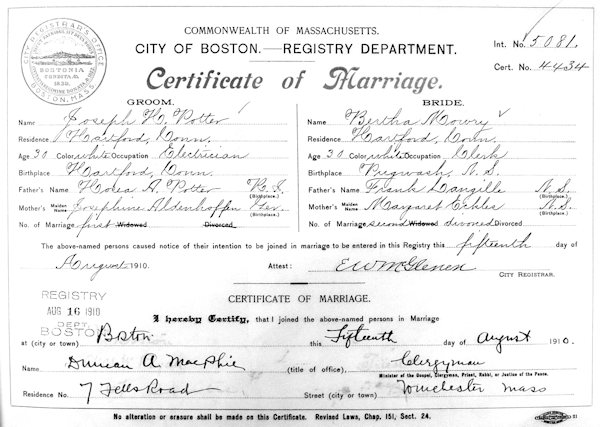 COMMONWEALTH OF MASSACHUSETTS.
CITY OF BOSTON.—REGISTRY DEPARTMENT.
Int. No. 5081.
Cert. No. 4434
CITY REGISTRAR'S OFFICE
BOSTONIA
CONDITA A.D.
1630.
BOSTON, MASS.
Certificate of Marriage.
GROOM. BRIDE.
Name Joseph H. Potter Name Bertha Mowry
Residence Hartford, Conn. Residence Hartford, Conn.
Age 30 Color white Occupation Electrician Age 30 Color white Occupation Clerk
Birthplace Hartford, Conn. Birthplace Pugwash, N.S.
Father's Name A. Potter R.I. (Birthplace.) Father's Name Frank Langille N.S. (Birthplace.)
Mother's Maiden Name Josephine Aldenhoffen Ger. (Birthplace.) Mother's Maiden Name Margaret N.S. (Birthplace.)
No. of Marriage first Widowed Divorced No. of Marriage second Widowed divorced Divorced
The above-named persons caused notice of their intention to be joined in marriage to be entered in this Registry this fifteenth day of
August 1910. Attest: E W McGlenen
CITY REGISTRAR.
CERTIFICATE OF MARRIAGE.
REGISTRY
AUG 16 1910
DEPT.
BOSTON
I hereby Certify, that I joined the above-named persons in Marriage
at (city or town) Boston this Fifteenth day of August 1910.
Name Duncan A. MacPhie (title of office) Clergyman
Minister of the Gospel, Clergyman, Priest, Rabbi, or Justice of the Peace.
Residence No. 7 Fells Road Street (city or town) Winchester Mass
No alteration or erasure shall be made on this Certificate. Revised Laws, Chap. 151, Sect. 24.